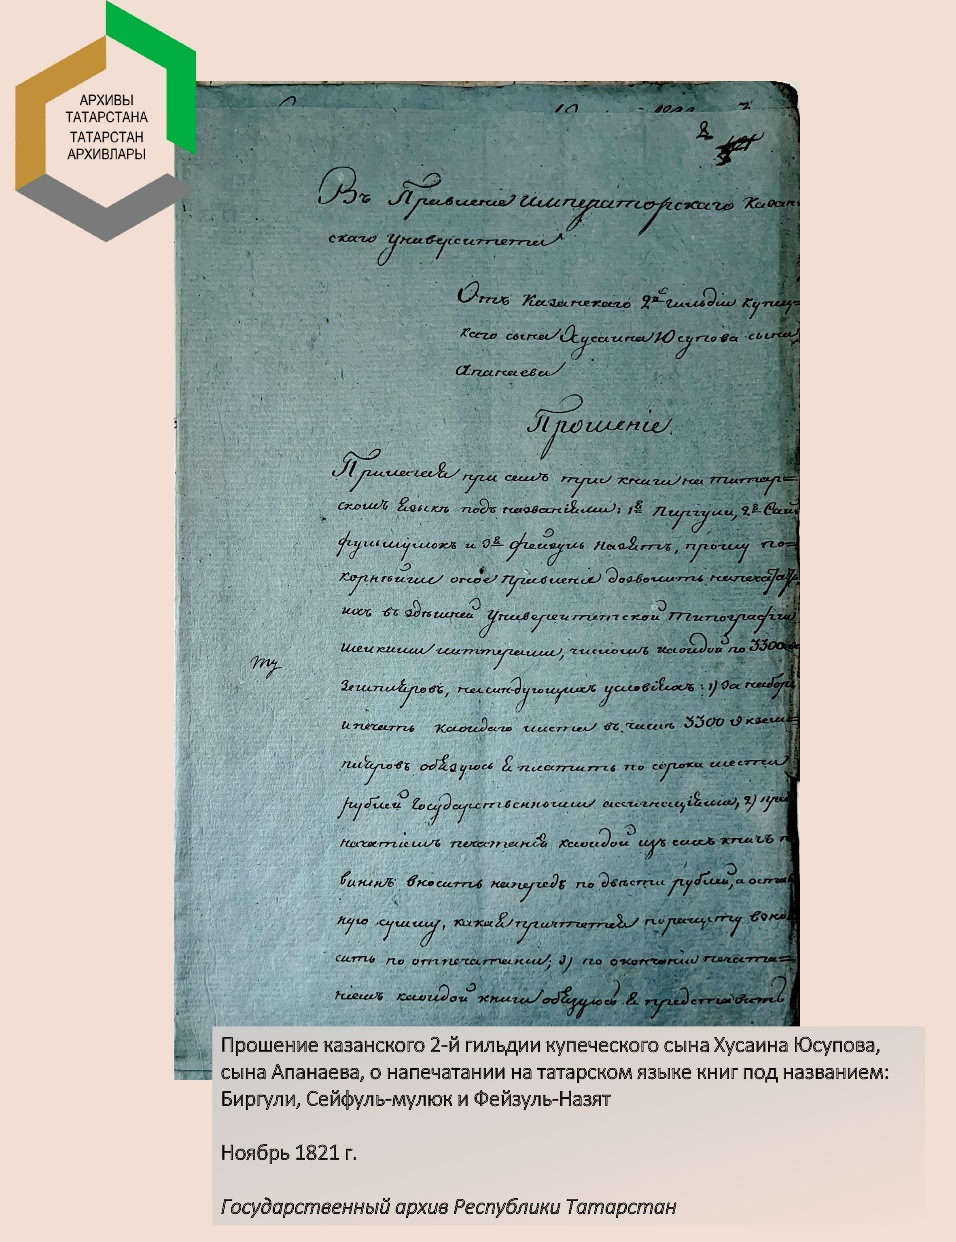 АРХИВЫ
ТАТАРСТАНА
ТАТАРСТАН
АРХИВЛАРЫ
2
Въ Правленіе Императорскаго Казан-
скаго Университета
Отъ Казанскаго 2й гильдіи купец-
каго сына Хусаина Юсупова сына
Апанаева
Прошеніе.
Прилагая при семъ три книги на татар=
скомъ языкѣ подъ названіями: 1я Пиргули, 2я Сай
фульмулюкъ и 3я Фейзуль Назятъ, прошу по=
корнѣйше оное Правленіе дозволить напечатать
ихъ въ здѣшней Университетской Типографіи
шейкими литерами, числомъ каждой по 3300 эк
земпляровъ, на слѣдующихъ условіяхъ: 1) За наборъ
и печать каждаго листа въ числѣ 3300 Экзем=
пляровъ обязуюсь я платить по сорока шести
рублей Государственными ассигнаціями, 2) пред
начатіемъ печатанія каждой изъ сихъ книгъ п
виненъ вносить напередъ по двѣсти рублей, а осталь
ную сумму, какая причтется по расщету взно
сить по отпечатаніи; 3) по окончаніи печата=
ніемъ каждой книги обязуюсь я представить
Прошение казанского 2-й гильдии купеческого сына Хусаина Юсупова,
сына Апанаева, о напечатании на татарском языке книг под названием:
Биргули, Сейфуль-мулюк и Фейзуль-Назят
Ноябрь 1821 г.
Государственный архив Республики Татарстан